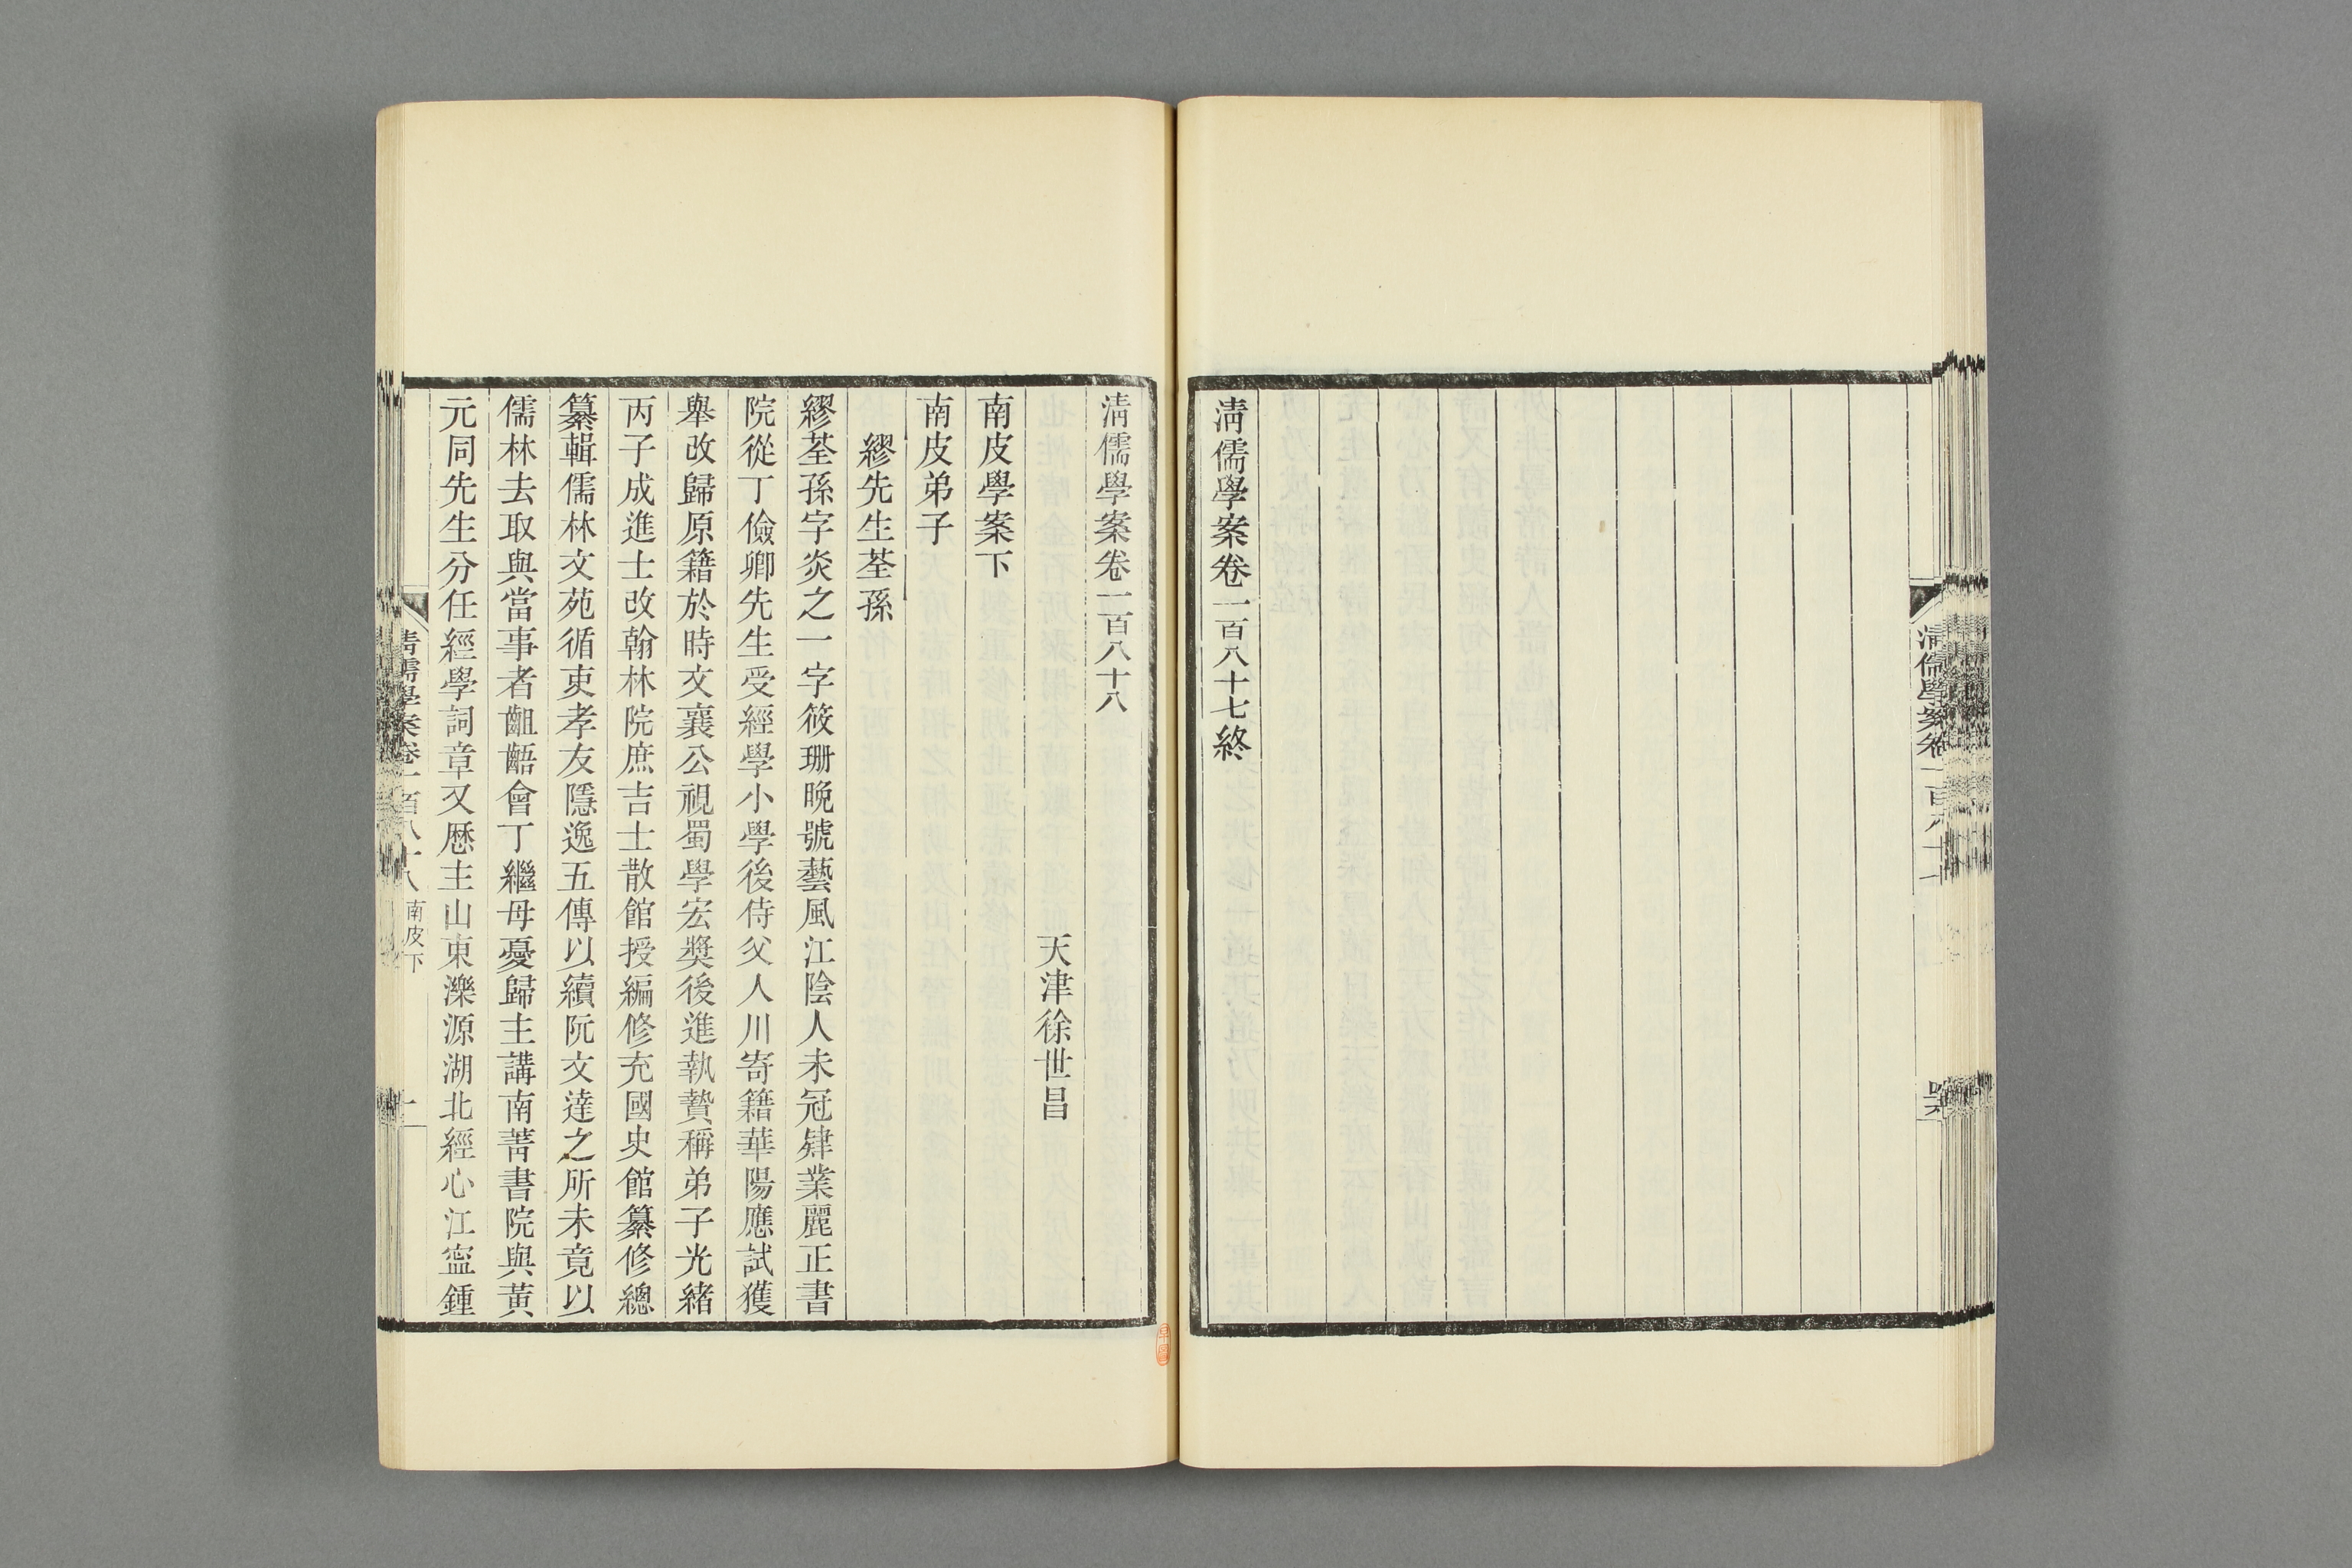 淸儒學案卷一百八十七終
淸儒學案卷一百八十八
天津徐世昌
南皮學案下
南皮弟子
繆先生荃孫
繆荃孫字炎之一字筱珊晩號藝風江陰人未冠肄業麗正書
院從丁儉卿先生受經學小學後侍父人川寄籍華陽應試獲
舉改歸原籍於時文襄公視蜀學宏奬後進執贄稱弟子光緒
丙子成進士改翰林院庶吉士散館授編修充國史館纂修總
纂輯儒林文苑循吏孝友隱逸五傳以續阮文達之所未竟以
儒林去取與當事者齟齬會丁繼母憂歸主講南菁書院與黃
元同先生分任經學詞章又歷主山東濼源湖北經心江寍鍾
淸儒學案卷一百八十八
南皮下
一